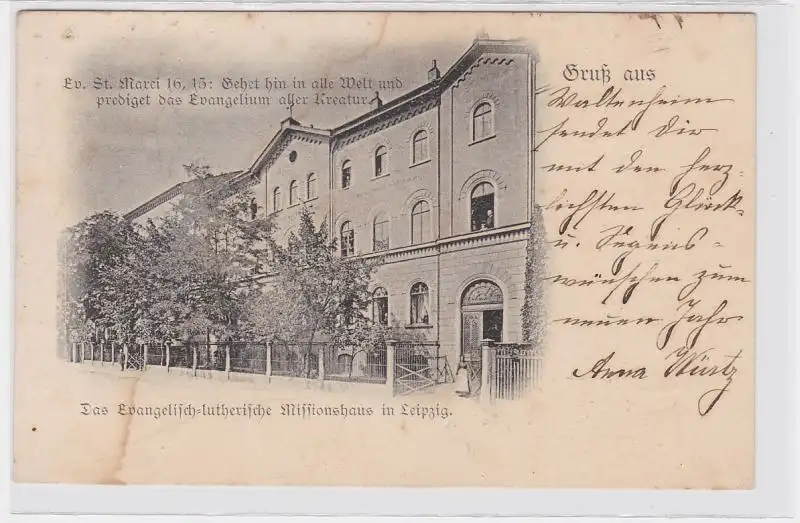 Ev. St. Marci 16, 15: Gehet hin in alle Welt und
prediget das Evangelium aller Kreatur.
Gruß aus
Waltenheim
sendet Dir
mit den herz-
lichsten Glück-
u. Segens-
wünschen zum
neuen Jahr
Anna Würtz
Das Evangelisch-lutherische Missionshaus in Leipzig.